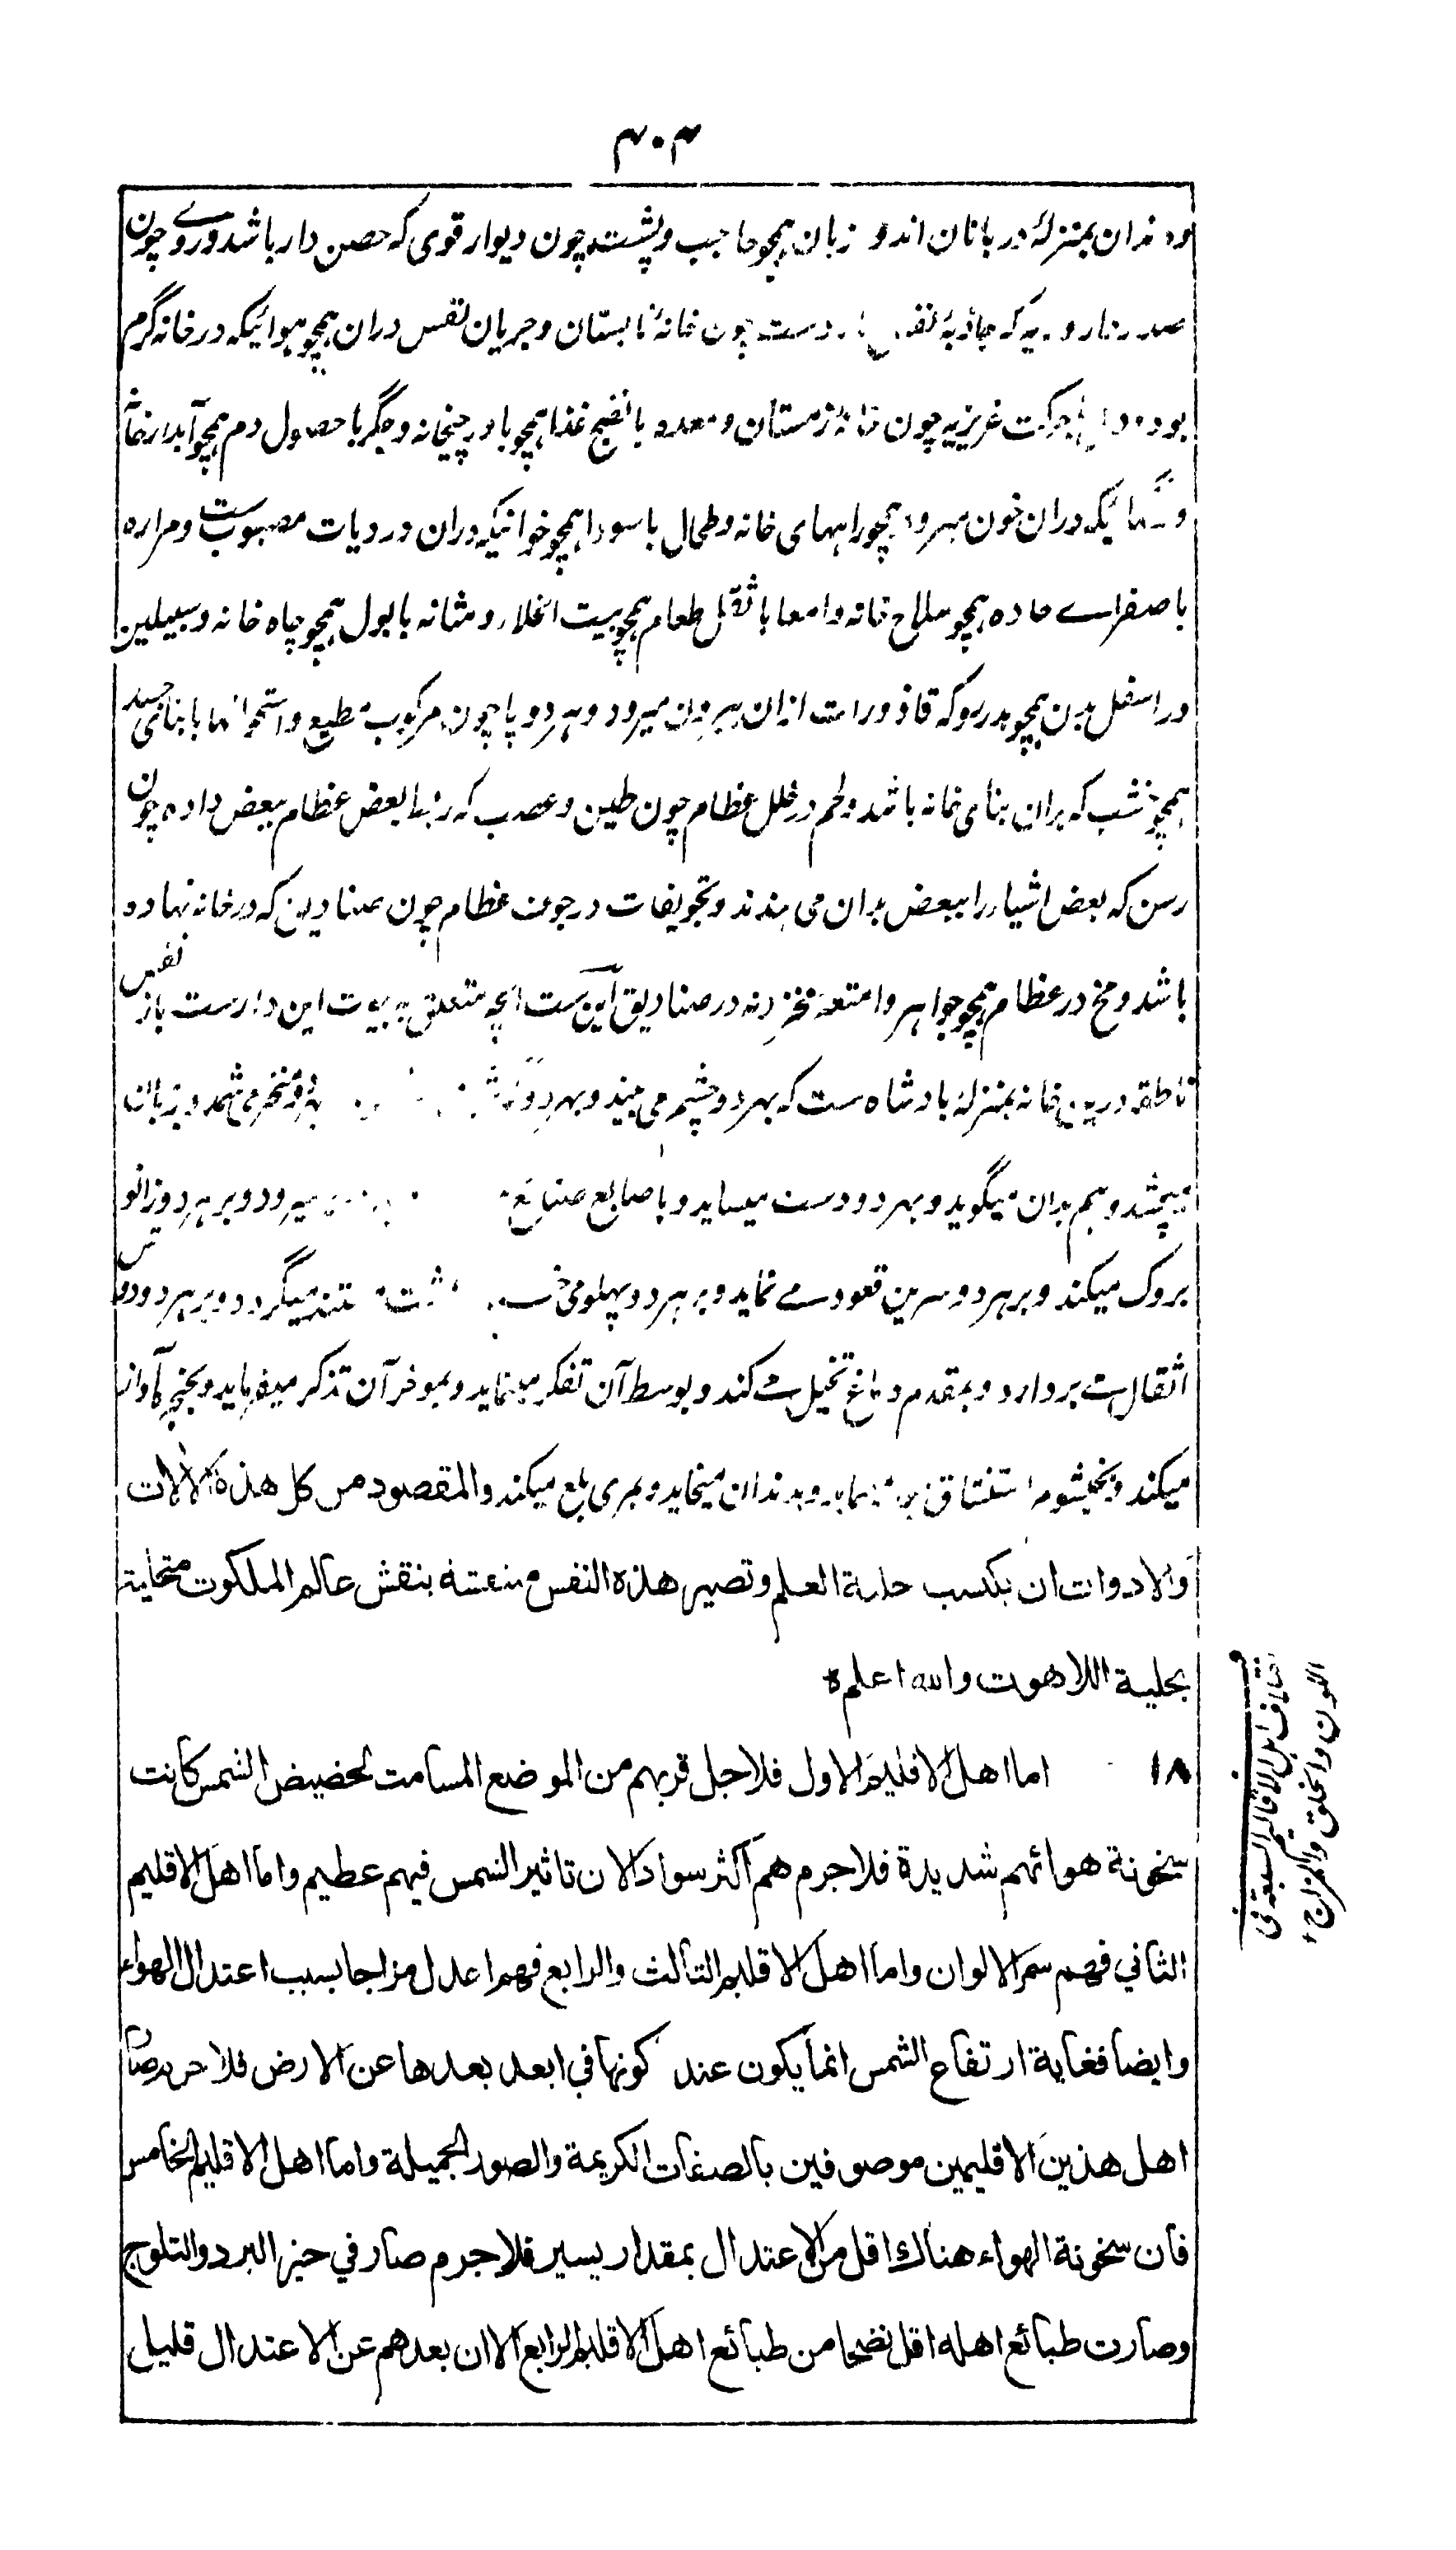 ۴۰۳
ودندان بمنزلهٔ دربانان اند و زبان همچو حاجب و پشت چون دیوار قوی که حصن دار باشد و روے چون
صدر دار و ریه که جاذبهٔ نفس است چون خانهٔ تابستان و جریان نفس دران همچو هوائیکه در خانه گرم
بود و حرکت غریزیه چون خانهٔ زمستان و معده با نضج غذا همچو باورچیخانه و جگر با حصول دم همچو آبدارخانه
و رگهائیکه دران خون میرود همچو راههای خانه و طحال با سودا همچو خوانیکه دران دردیات مصبوب ست و مراره
با صفراے حاده همچو سلاح خانه و امعا با ثقل طعام همچو بیت الخلاء و مثانه با بول همچو چاه خانه و سبیلین
در اسفل بدن همچو بدررو که قاذورات ازان بیرون میرود و هر دو پا چون مرکوب مطیع و استخوانها با بنای جسد
همچو خشب که بران بنای خانه باشد و لحم در خلل عظام چون طین و عصب که ربط بعض عظام ببعض داده چون
رسن که بعض اشیاء را ببعض بدان می بندند و تجویفات در جوف عظام چون صنادیق که در خانه نهاده
باشد و مخ در عظام همچو جواهر و امتعهٔ مخزونه در صنادیق این ست آنچه متعلق به بیوت این دارست باز نفس
ناطقه درین خانه بمنزلهٔ بادشاه ست که بهر دو چشم می بیند و بهر دو گوش و بهر دو منخر می شمد و بزبان
میچشد و هم بدان میگوید و بهر دو دست میساید و باصابع صنایع میرود و بر هر دو زانو
بروک میکند و بر هر دو سرین قعود مے نماید و بر هر دو پهلو می خسپد و مستند میگردد و بر هر دو دوش
اثقال مے بردارد و بمقدم دماغ تخیل مے کند و بوسط آن تفکر مینماید و بموخر آن تذکر میفرماید و بحنجره آواز
میکند و بخیشوم استنشاق مینماید و بدندان میخاید و بمری بلع میکند والمقصود من کل هذه الآلات
والادوات ان یکسب حلیة العلم وتصیر هذه النفس منقشة بنقش عالم الملکوت متحلیة
بحلیة اللاهوت والله اعلم ه
۱۸ اما اهل الاقلیم الاول فلاجل قربهم من الموضع المسامت لحضیض الشمس کانت
سخونة هوائهم شدیدة فلاجرم هم اکثر سوادا لان تاثیر الشمس فیهم عظیم واما اهل الاقلیم
الثانی فهم سمر الالوان واما اهل الاقلیم الثالث والرابع فهم اعدل مزاجا بسبب اعتدال الهواء
وایضا فغایة ارتفاع الشمس انما یکون عند کونها فی ابعد بعدها عن الارض فلاجرم صار
اهل هذین الاقلیمین موصوفین بالصفات الکریمة والصور الجمیلة واما اهل الاقلیم الخامس
فان سخونة الهواء هناك اقل من الاعتدال بمقدار یسیر فلاجرم صار فی حیز البرد والثلوج
وصارت طبائع اهله اقل نضجا من طبائع اهل الاقلیم الرابع الا ان بعدهم عن الاعتدال قلیل
اختلاف اهل الاقالیم السبعة فی
اللون والخلق والمزاج